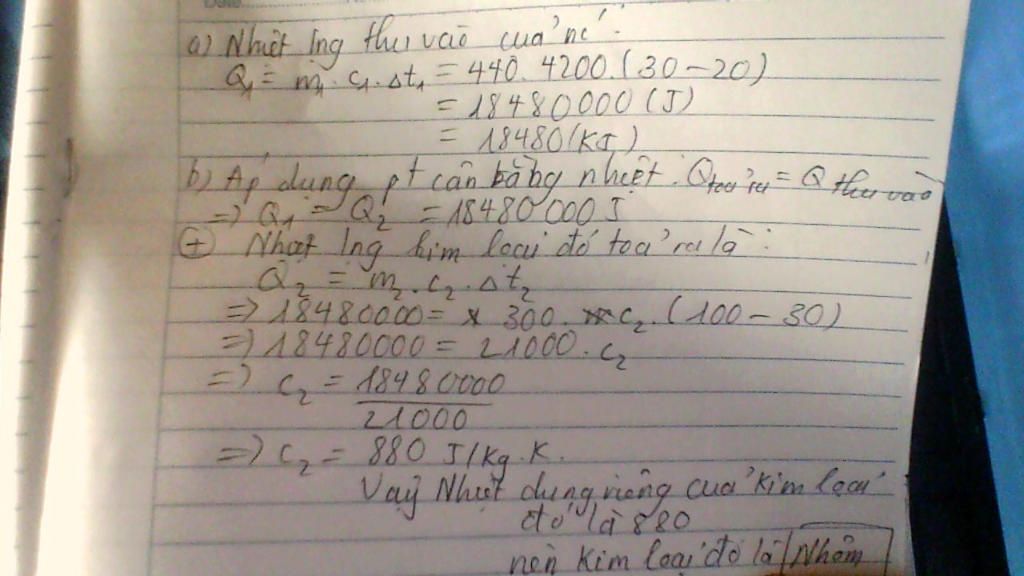 a) Nhiệt lng thu vào của nc':
Q₁ = m₁. c₁. Δt₁ = 440. 4200. (30-20)
= 18480000 (J)
= 18480 (KJ)
b) Áp dụng pt cân bằng nhiệt. Qtoả ra = Q thu vào
=> Q₁ = Q₂ = 18480000 J
⊕ Nhiệt lng kim loại đó toả ra là:
Q₂ = m₂. c₂. Δt₂
=> 18480000 = 300. c₂. (100-30)
=> 18480000 = 21000. c₂
=> c₂ = 18480000
21000
=> c₂ = 880 J/kg.K.
Vậy Nhiệt dung riêng của kim loại
đó là 880
nên kim loại đó là Nhôm